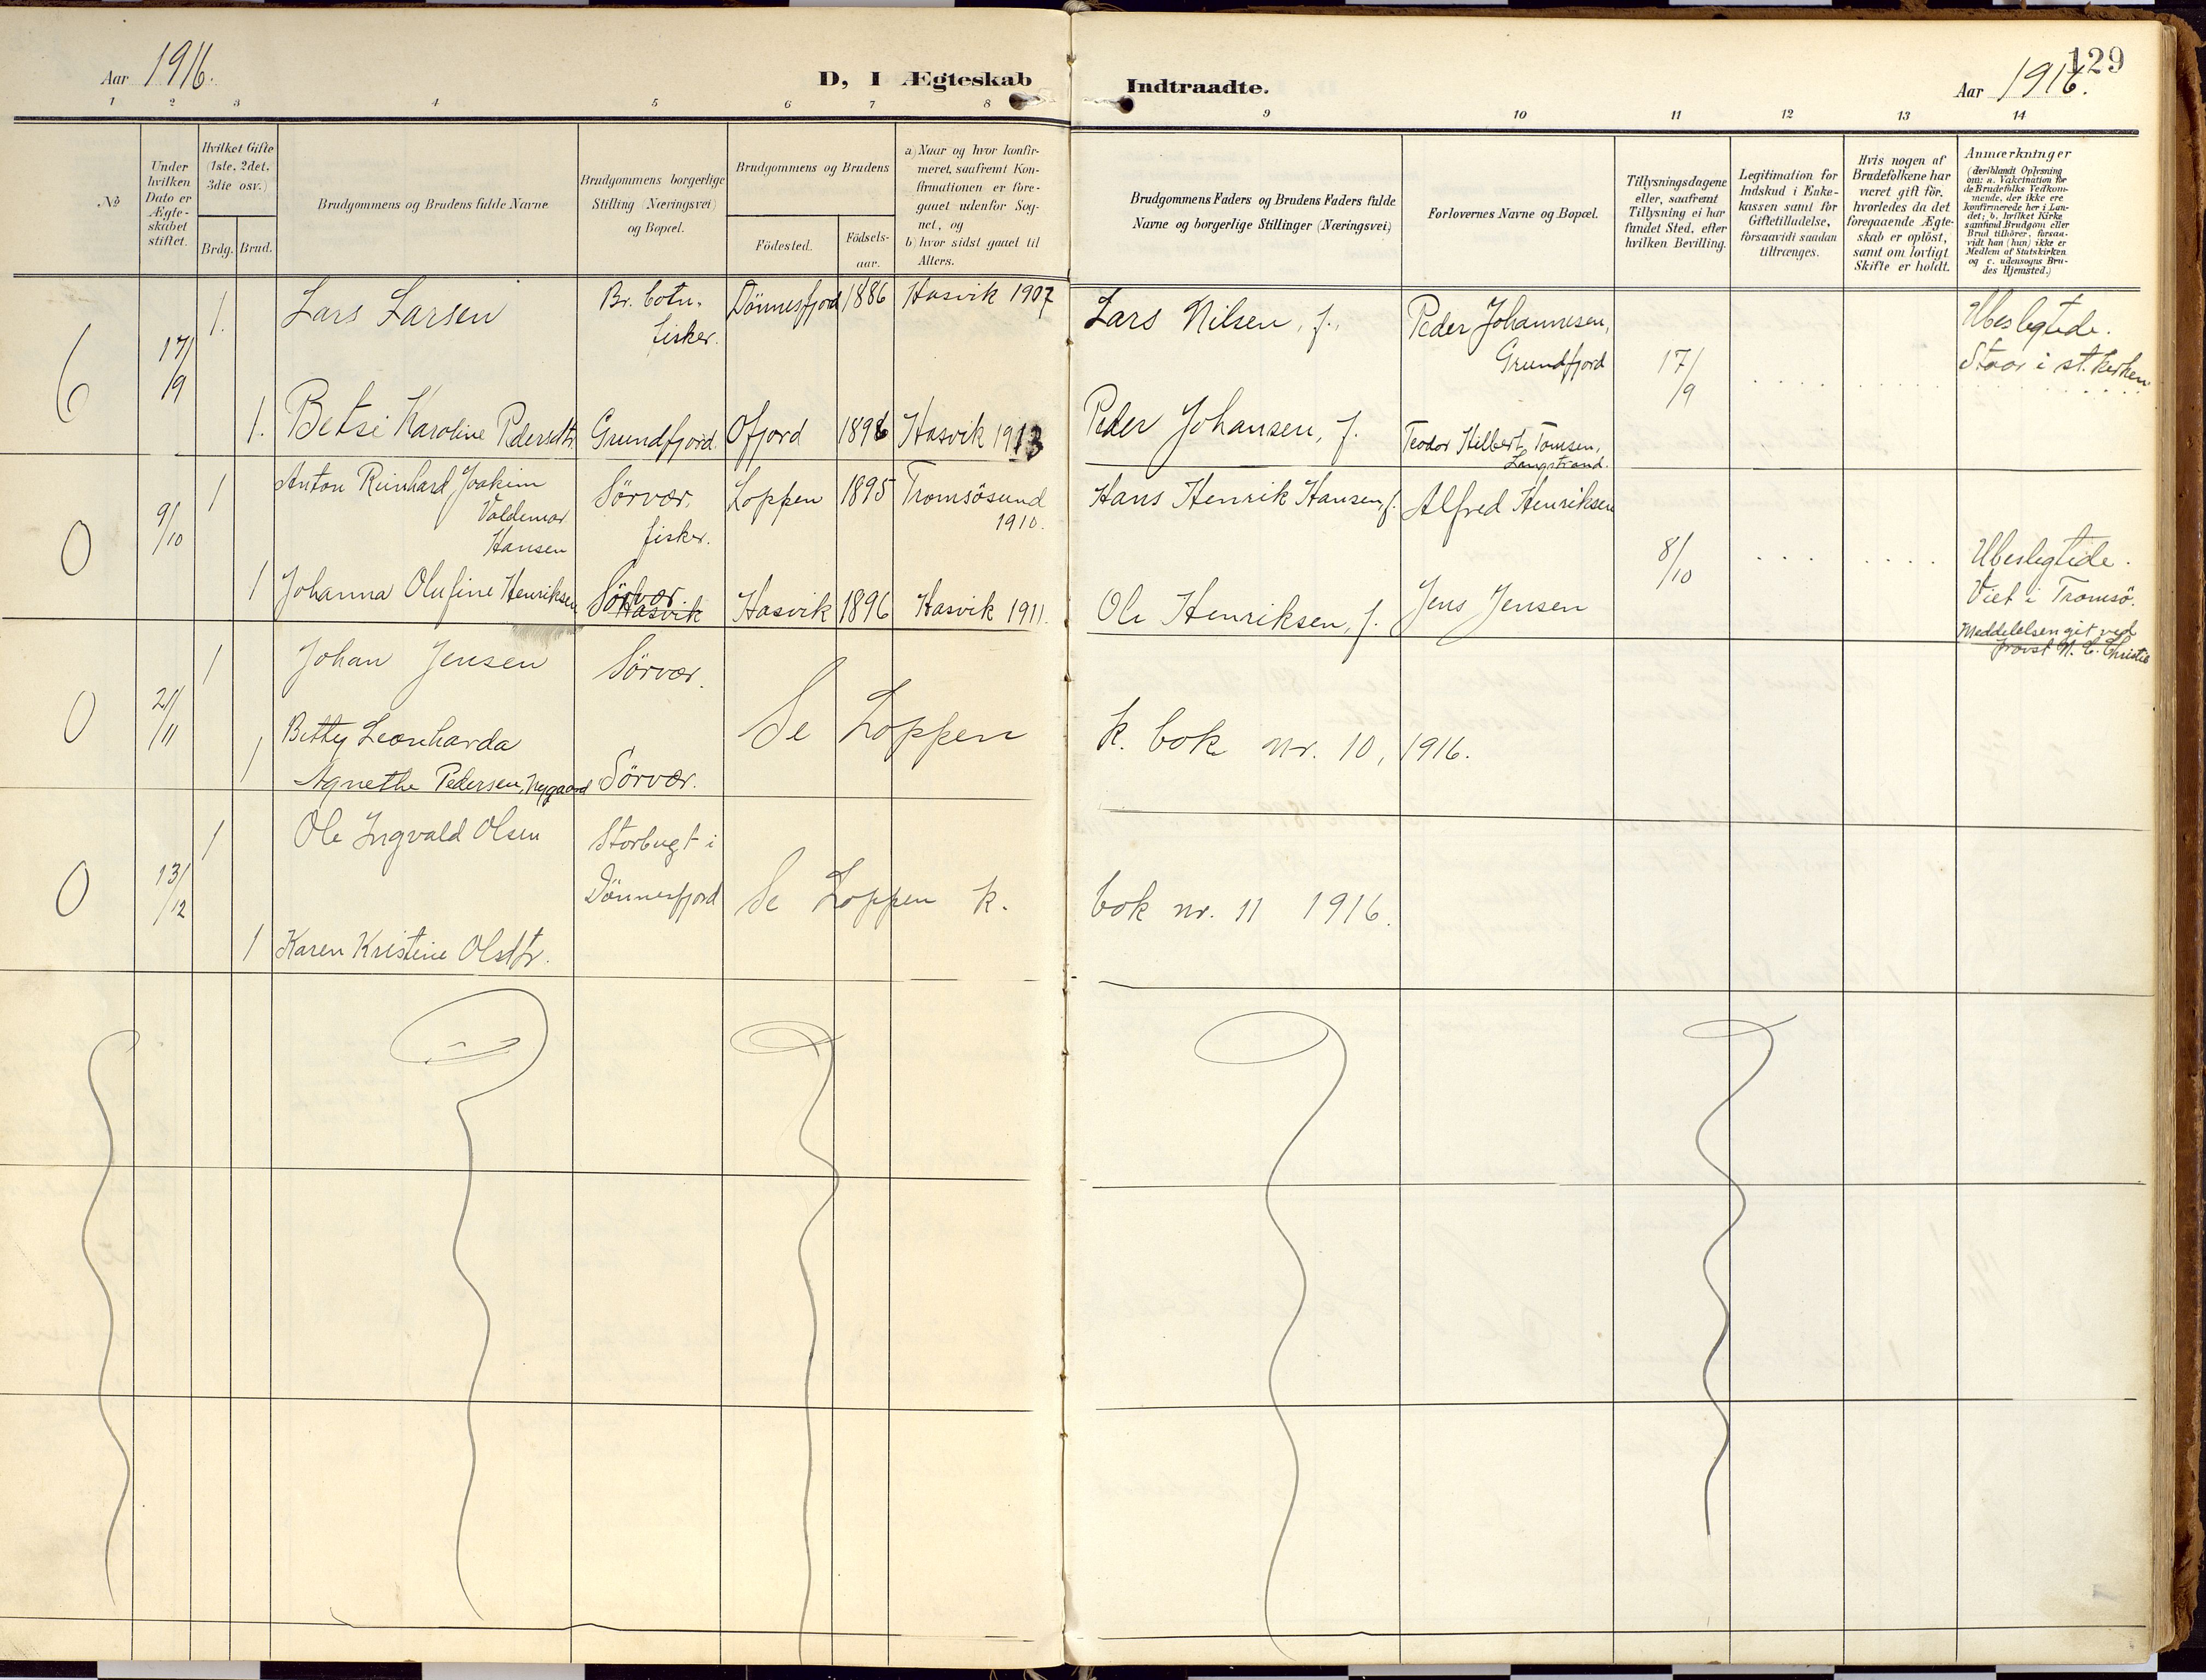 Aar 1916.
D, I Ægteskab Indtraadte.
129
Aar 1916.
1 2 3 4 5 6 7 8 9 10 11 12 13 14
№
Under
hvilken
Dato er
Ægte-
skabet
stiftet.
Hvilket Gifte
(1ste, 2det,
3die osv.)
Brdg. Brud.
Brudgommens og Brudens fulde Navne
Brudgommens borgerlige
Stilling (Næringsvei)
og Bopæl.
Brudgommens og Brudens
Födested.
Födsels-
aar.
a) Naar og hvor konfir-
meret, saafremt Kon-
firmationen er fore-
gaaet udenfor Sog-
net, og
b) hvor sidst gaaet til
Alters.
Brudgommens Faders og Brudens Faders fulde
Navne og borgerlige Stillinger (Næringsvei)
Forlovernes Navne og Bopæl.
Tillysningsdagene
eller, saafremt
Tillysning ei har
fundet Sted, efter
hvilken Bevilling.
Legitimation for
Indskud i Enke-
kassen samt for
Giftetilladelse,
forsaavidt saadan
tiltrænges.
Hvis nogen af
Brudefolkene har
været gift för,
hvorledes da det
foregaaende Ægte-
skab er oplöst,
samt om lovligt
Skifte er holdt.
Anmærkninger
(deriblandt Oplysning
om: a. Vakcination for
de Brudefolks Vedkom-
mende, der ikke ere
konfirmerede her i Lan-
det; b. hvilket Kirke
samfund Brudgom eller
Brud tilhörer, forsaa-
vidt han (hun) ikke er
Medlem af Statskirken
og c. udensogns Bru-
des Hjemsted.)
6
17/9
1. Lars Larsen
Br. botn.
fisker.
Dönnesfjord 1886 Hasvik 1907
Lars Nilsen, f.,
Peder Johannesen,
Grundfjord
17/9
Ubeslegtede.
Staar i st. kirken
1. Betsi Karoline Pedersdtr. Grundfjord. Ofjord 1898 Hasvik 1913
Peder Johansen, f.
Teodor Hilbert Tomsen,
Langstrand.
0
9/10
1 Anton Reinhard Joakim
Valdemar
Hansen
Sörvær,
fisker.
Loppen 1895 Tromsösund
1910.
Hans Henrik Hansen, f. Alfred Henriksen
8/10
Ubeslegtede.
Viet i Tromsö.
Meddelelsen git ved
provst N. C. Christie
1 Johanna Olufine Henriksen
Sörvær.
Hasvik
Hasvik 1896 Hasvik 1911.
Ole Henriksen, f. Jens Jensen
0
21/11
1 Johan Jensen Sörvær.
Se Loppen k. bok nr. 10, 1916.
1 Betty Leonharda
Agnethe Pedersen, Nygaard Sörvær.
0
13/12
1 Ole Ingvald Olsen
Storbugt i
Dönnesfjord
Se Loppen k. bok nr. 11 1916.
1 Karen Kristine Olsdtr.